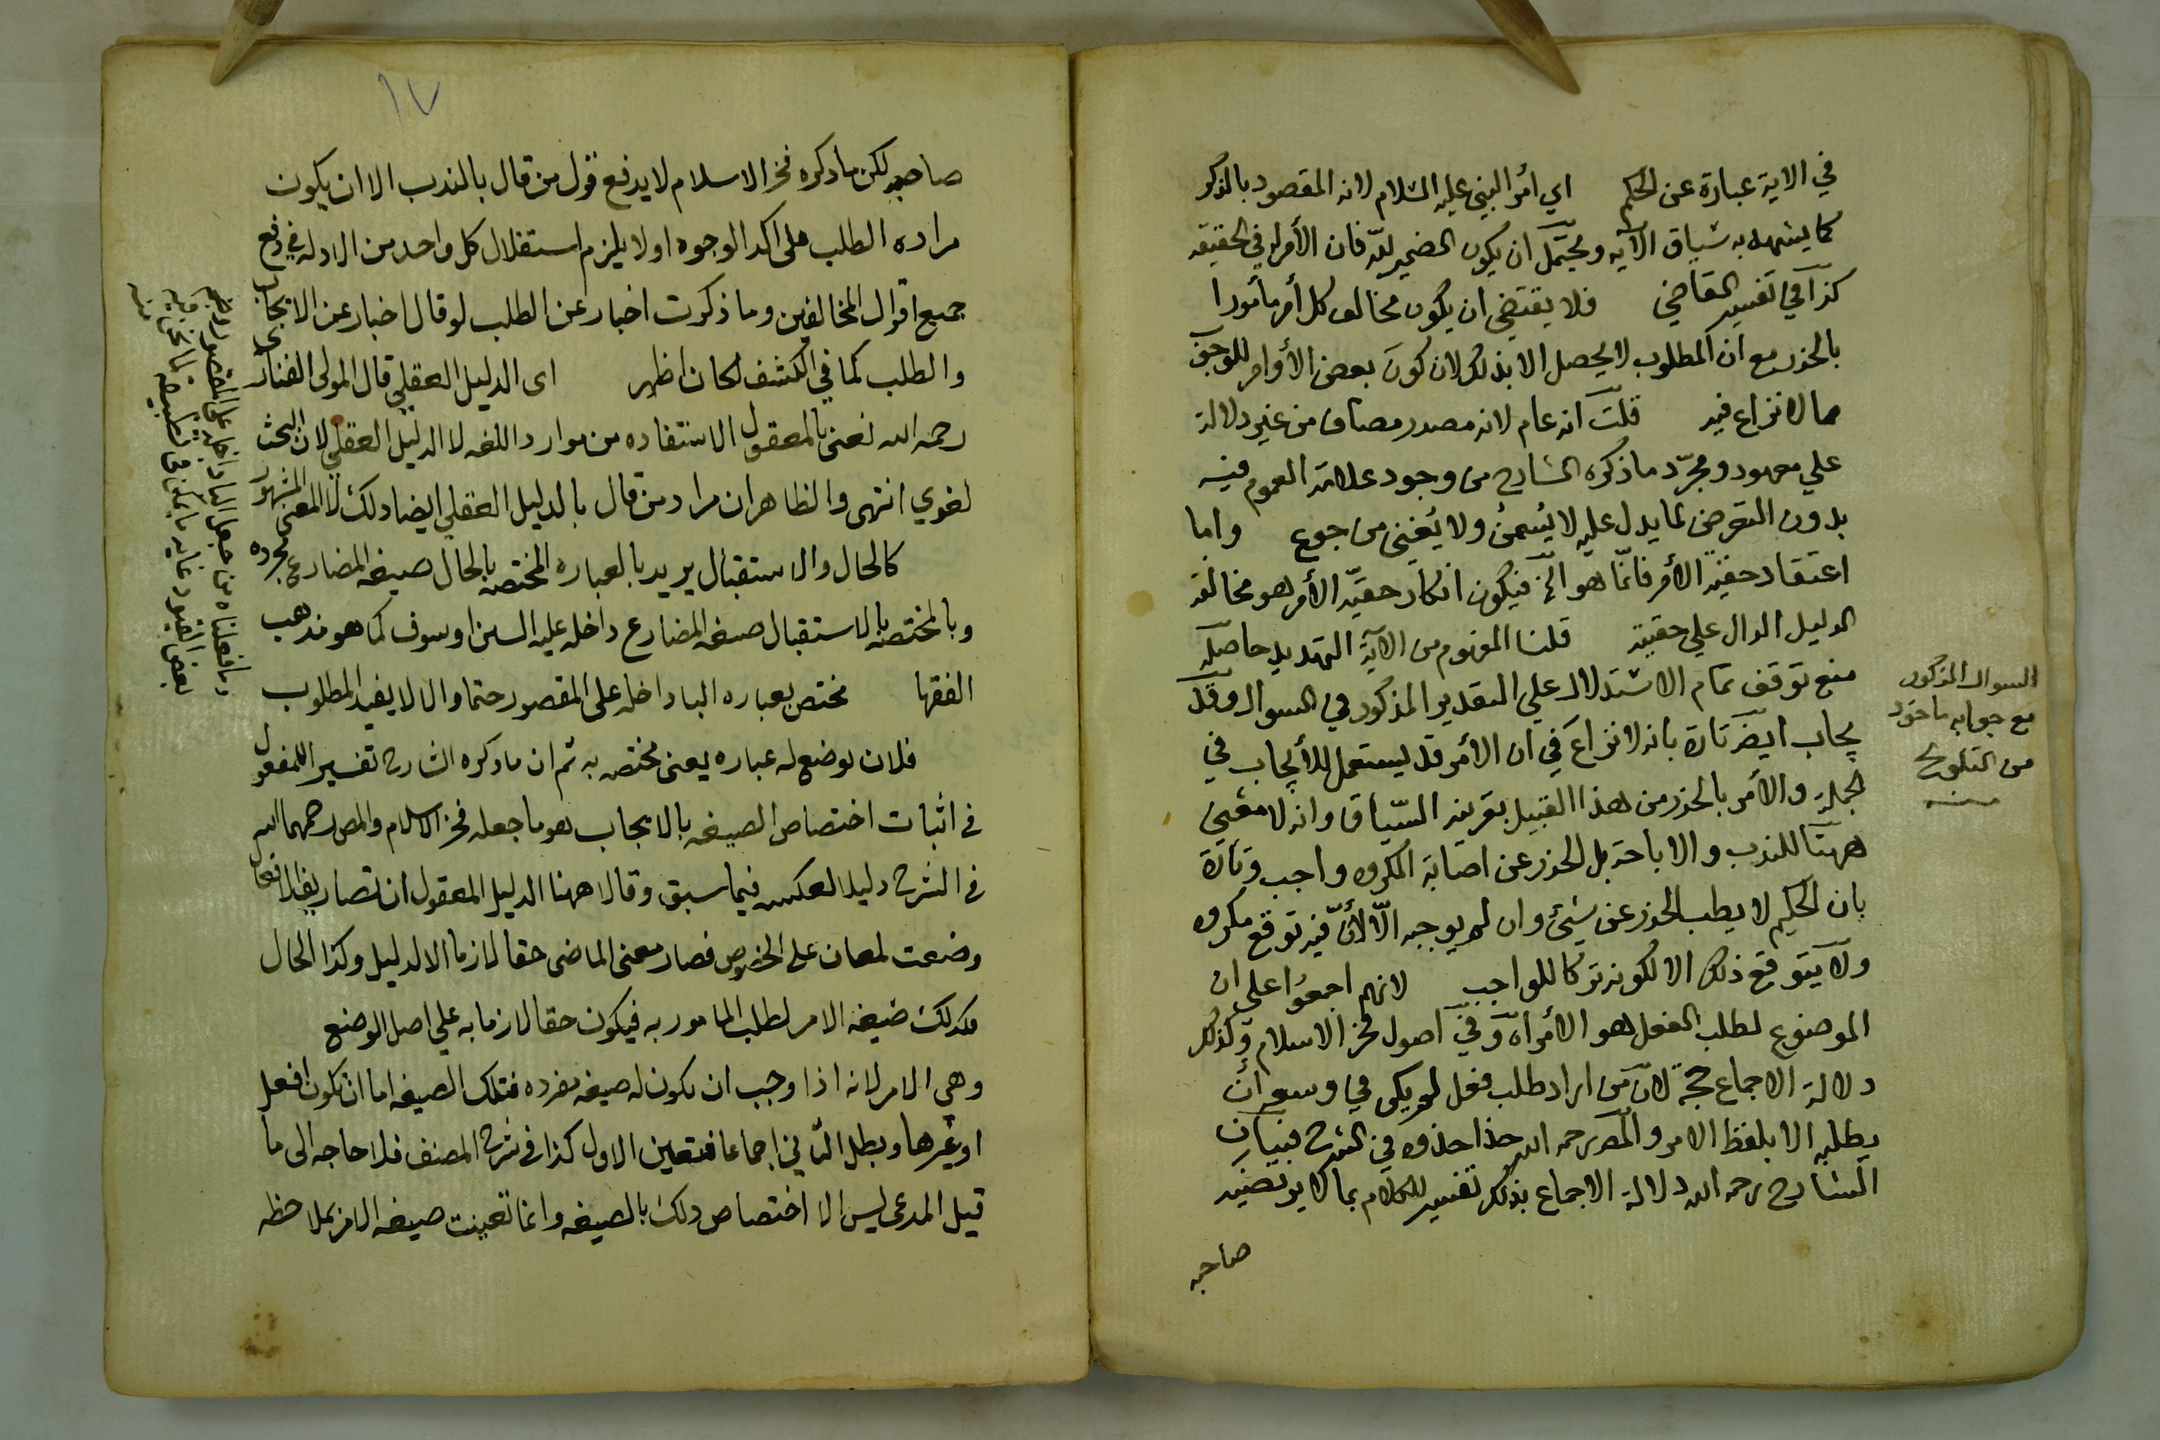 في الاية عبارة عن الحكم اي أمر النبي عليه السلام لانه المقصود بالذكر
كما يشهد به سياق الآية ويحتمل ان يكون الضمير لله فان الأمر له في الحقيقه
كذا في تفسير القاضي فلا يقتضي ان يكون مخالف كل أمر مأمورا
بالحذر مع ان المطلوب لا يحصل الا بذلك لان كون بعض الأوامر للوجوب
مما لا نزاع فيه قلت انه عام لانه مصدر مضاف من غير دلالة
علي معهود ومجرّد ما ذكره الشارح من وجود علامة العموم فيه
بدون التعرض لما يدل عليه لا يُسمن ولا يُغني من جوع واما
اعتقاد حقية الأمر فانّما هو الخ فيكون انكار حقيّة الأمر هو مخالفة
الدليل الدال علي حقيته قلنا المفهوم من الآية التهديد حاصله
منع توقف تمام الاستدلال علي التقدير المذكور في السوال وقد
يجاب ايضا تارة بانه لا نزاع في ان الأمر قد يستعمل للأيجاب في
الجملة والأمر بالحذر من هذا القبيل بقرينة السّياق وانه لا معني
ههنا للندب والاباحة بل الحذر عن اصابة المكروه واجب وتارة
بان الحكيم لا يطلب الحذر عن شيئ وان لم يوجبه الّا لأنّ فيه توقع مكروه
ولا يتوقع ذلك الا لكونه تركا للواجب لانهم اجمعوا علي ان
الموضوع لطلب الفعل هو الأمر اه وفي اصول فخر الاسلام وكذلك
دلالة الاجماع حجة لانّ من اراد طلب فعل لم يكن في وسعه أن
يطلبه الا بلفظ الامر والمص رحمه الله حذا حذوه في الشرح فبيان
الشارح رحمه الله دلالة الاجماع بذلك تفسير للكلام بما لا يرتضيه
صاحبه
السوال المذكور
مع جوابه ماخوذ
من التلويح
منه
١٧
صاحبه لكن ما ذكره فخر الاسلام لا يدفع قول من قال بالندب الا ان يكون
مراده الطلب على اكد الوجوه او لا يلزم استقلال كل واحد من الادله في دفع
جميع اقوال المخالفين وما ذكرت اخبار عن الطلب لو قال اخبار عن الايجاد
والطلب كما في الكشف لكان اظهر اى الدليل العقلي قال المولى الفنارى
رحمه الله نعنى بالمعقول الاستفاده من موارد اللغه لا الدليل العقلي لان البحث
لغوي انتهى والظاهر ان مراد من قال بالدليل العقلي ايضا ذلك لا المعنى المشهور
كالحال والاستقبال يريد بالعباره المختصه بالحال صيغه المضارع مجرده
وبالمختصه بالاستقبال صيغه المضارع داخله عليه السين او سوف كما هو مذهب
الفقها مختص بعباره البا داخله على المقصور حتما والا لا يفيد المطلوب
فلان يوضع له عباره يعنى مختصه به ثم ان ما ذكره الشارح تفسيرا للمعقول
في اثبات اختصاص الصيغه بالايجاب هو ما جعله فخر الاسلام والمص رحمهما الله
في الشرح دليلا لعكسه فيما سبق وقالا ههنا الدليل المعقول ان تصاريف الافعال
وضعت لمعان على الخصوص فصار معنى الماضى حقا لازما الا لدليل وكذا الحال
فكذلك صيغه الامر لطلب المامور به فيكون حقا لازما به علي اصل الوضع
وهي الامر لانه اذا وجب ان يكون له صيغه مفرده فتلك الصيغه اما ان يكون افعل
او غيرها وبطل الثاني اجماعا فتعين الاول كذا في شرح المصنف فلا حاجه الى ما
قيل المدعى ليس الا اختصاص ذلك بالصيغه وانما تعينت صيغه الامر بملاحظه